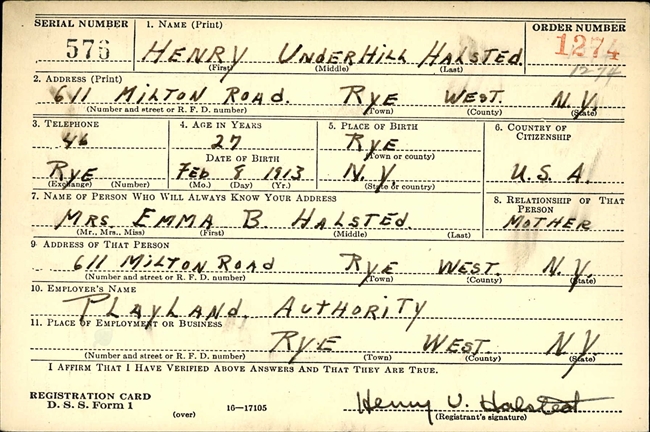 SERIAL NUMBER 1. NAME (Print) ORDER NUMBER
576 HENRY UNDERHILL HALSTED. 1274
(First) (Middle) (Last) 1274
2. ADDRESS (Print)
611 MILTON ROAD. RYE WEST. N.Y.
(Number and street or R. F. D. number) (Town) (County) (State)
3. TELEPHONE 4. AGE IN YEARS 5. PLACE OF BIRTH 6. COUNTRY OF CITIZENSHIP
46 27 RYE
DATE OF BIRTH (Town or county)
RYE FEB 8 1913 N.Y U.S.A.
(Exchange) (Number) (Mo.) (Day) (Yr.) (State or country)
7. NAME OF PERSON WHO WILL ALWAYS KNOW YOUR ADDRESS 8. RELATIONSHIP OF THAT PERSON
MRS. EMMA B. HALSTED. MOTHER
(Mr., Mrs., Miss) (First) (Middle) (Last)
9. ADDRESS OF THAT PERSON
611 MILTON ROAD RYE WEST. N.Y.
(Number and street or R. F. D. number) (Town) (County) (State)
10. EMPLOYER'S NAME
PLAYLAND. AUTHORITY
11. PLACE OF EMPLOYMENT OR BUSINESS
RYE WEST. N.Y.
(Number and street or R. F. D. number) (Town) (County) (State)
I AFFIRM THAT I HAVE VERIFIED ABOVE ANSWERS AND THAT THEY ARE TRUE.
REGISTRATION CARD
D. S. S. Form 1 (over) 16-17105 Henry U. Halsted
(Registrant's signature)